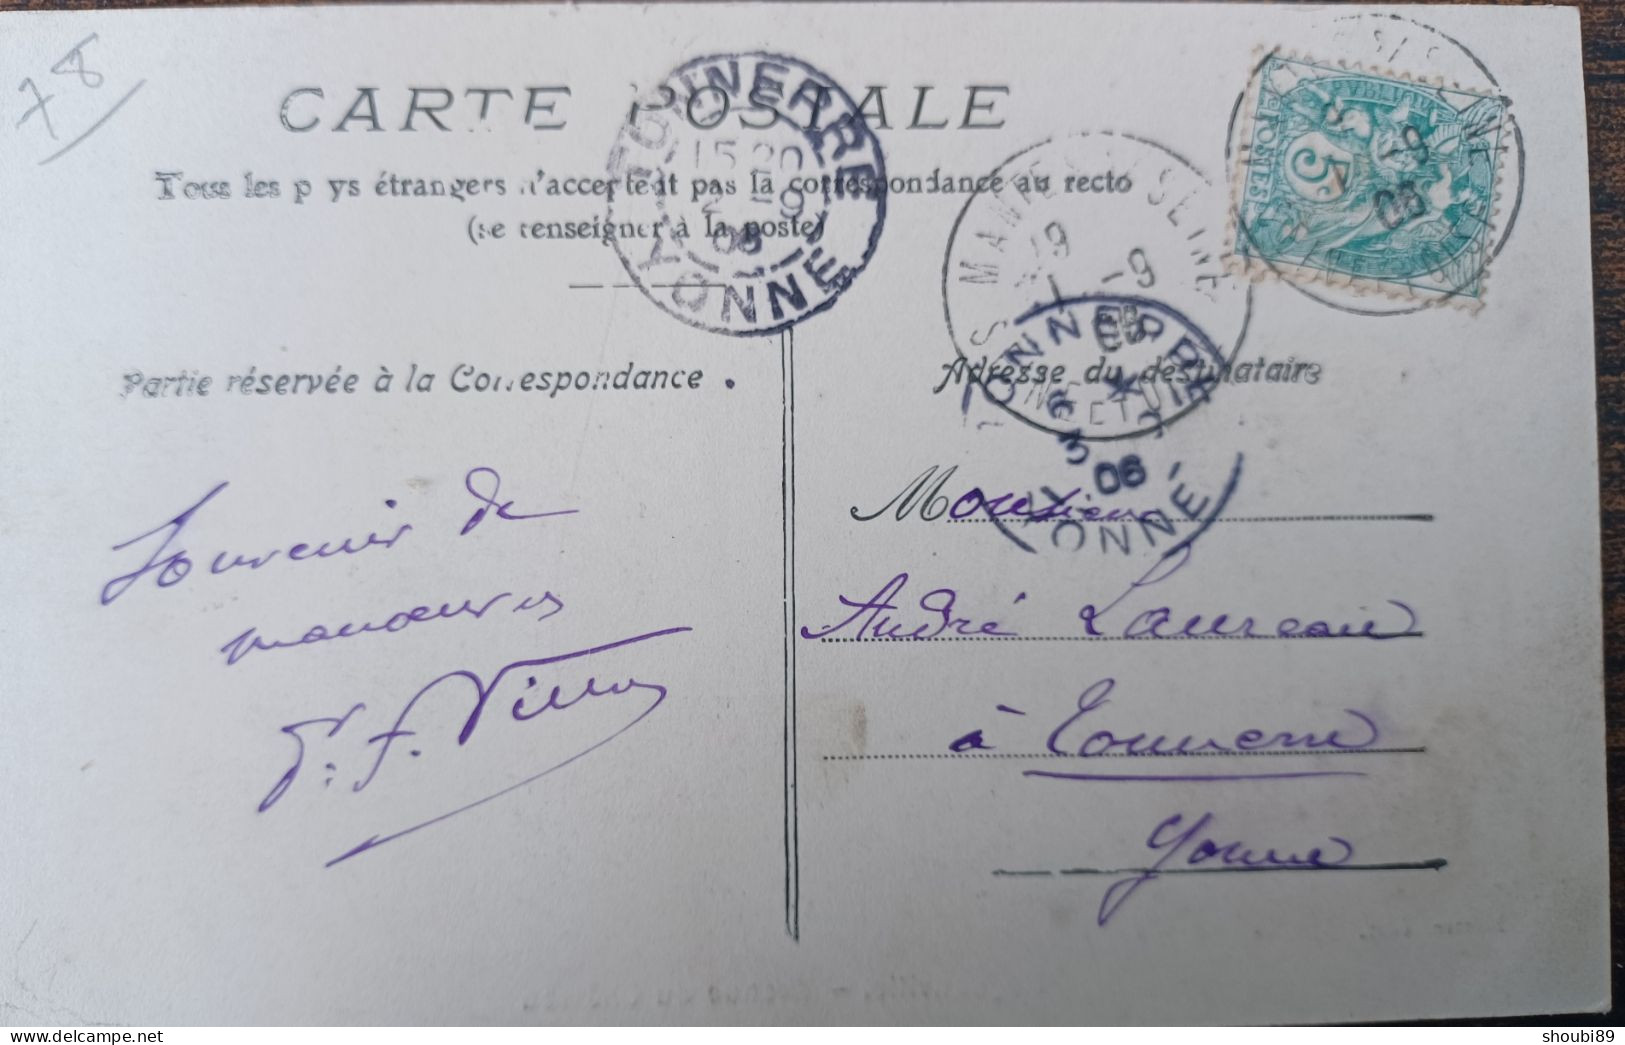 78
CARTE POSTALE
Tous les p ys étrangers n'acceptent pas la correspondance au recto
(se renseigner à la poste)
TONNERRE
15 20
2 -9
06
YONNE
MANTES S SEINE
19
1 -9
06
SEINE ET OISE
TONNERRE
06
YONNE
5
POSTES
1 -9
06
Partie réservée à la Correspondance
Souvenir de
manœuvres
Adresse du destinataire
Monsieur
André Laureau
à Tonnerre
Yonne
shoubi89